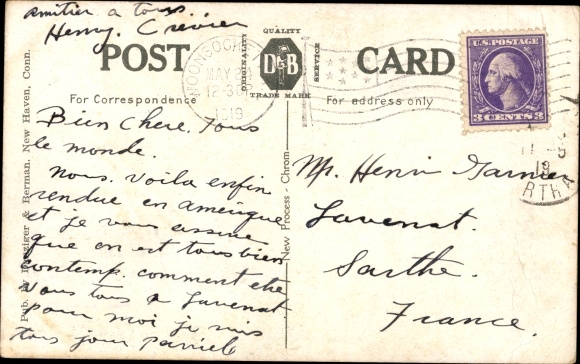 amitier a tous
Henry. Crevier
POST CARD
QUALITY
ORIGINALITY
SERVICE
D & B
TRADE MARK
MAY 2
12-30
1919
U.S. POSTAGE
3 CENTS 3
For Correspondence
For address only
Bien chere. Tous
le monde.
Nous. voila enfin
rendue en amerique
et je vous assure
que on est tous bien
contemp. comment etes
vous tous a Lavenat
pour moi je suis
tous jour pariel
Mr. Henri Garnier
Lavenat.
Sarthe.
France.
Pub. by Danziger & Berman, New Haven, Conn.
New Process - Chrom
19